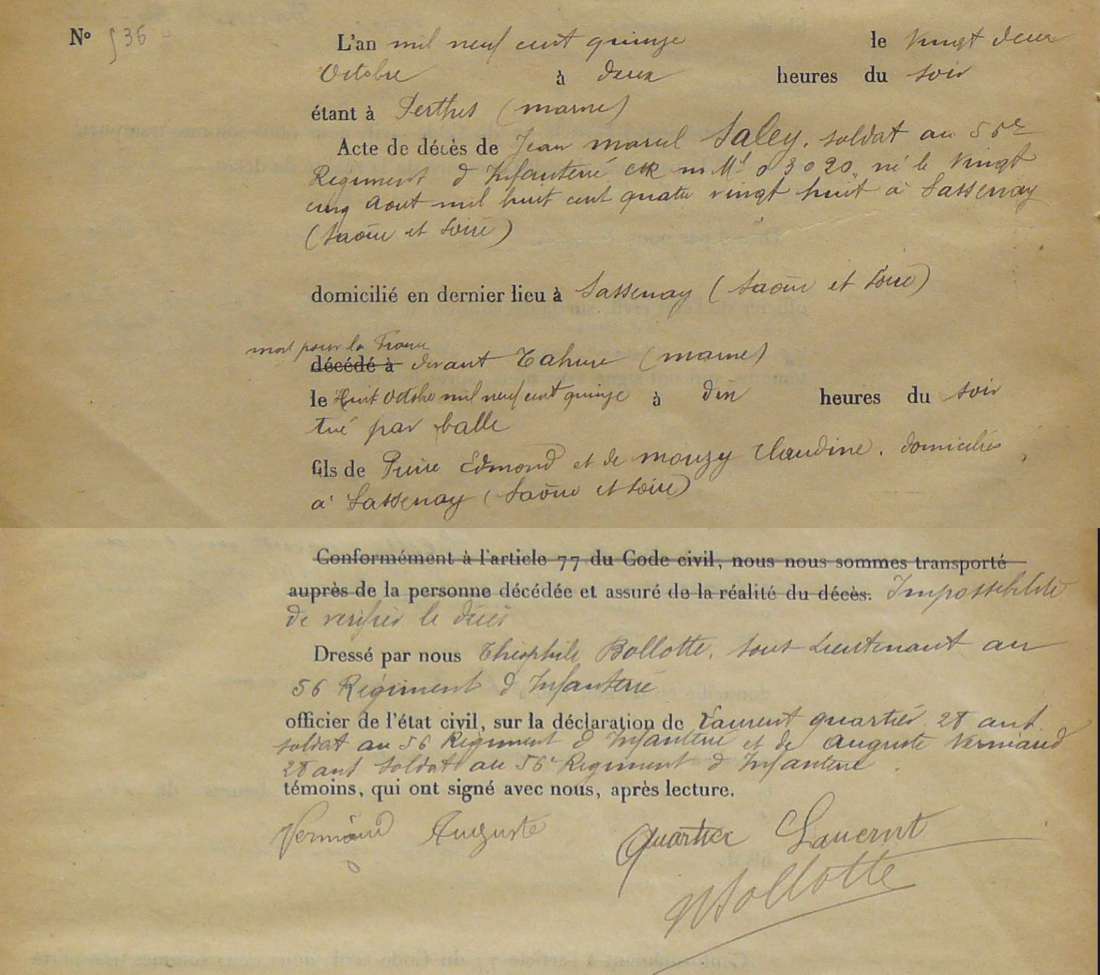 N° 536
L'an mil neuf cent quinze le vingt deux
Octobre à deux heures du soir
étant à Perthes (marne)
Acte de décès de Jean marcel Saley, soldat au 56e
Regiment d Infanterie mle 03020, né le vingt
cinq Aout mil huit cent quatre vingt huit à Sassenay
(Saône et Loire)
domicilié en dernier lieu à Sassenay (Saône et Loire)
mort pour la France
décédé à devant Tahure (marne)
le Huit Octobre mil neuf cent quinze à dix heures du soir
tué par balle
fils de Pierre Edmond et de mouzy Claudine, domiciliés
à Sassenay (Saône et Loire)
Conformément à l'article 77 du Code civil, nous nous sommes transporté
auprès de la personne décédée et assuré de la réalité du décès. Impossibilité
de verifier le décès
Dressé par nous Théophile Bollotte, Sous Lieutenant au
56 Régiment d Infanterie
officier de l'état civil, sur la déclaration de Laurent quartier 28 ans
soldat au 56 Regiment d Infanterie et de Auguste Verniaud
28 ans soldat au 56e Regiment d Infanterie
témoins, qui ont signé avec nous, après lecture.
Verniaud Auguste Quartier Laurent
Bollotte